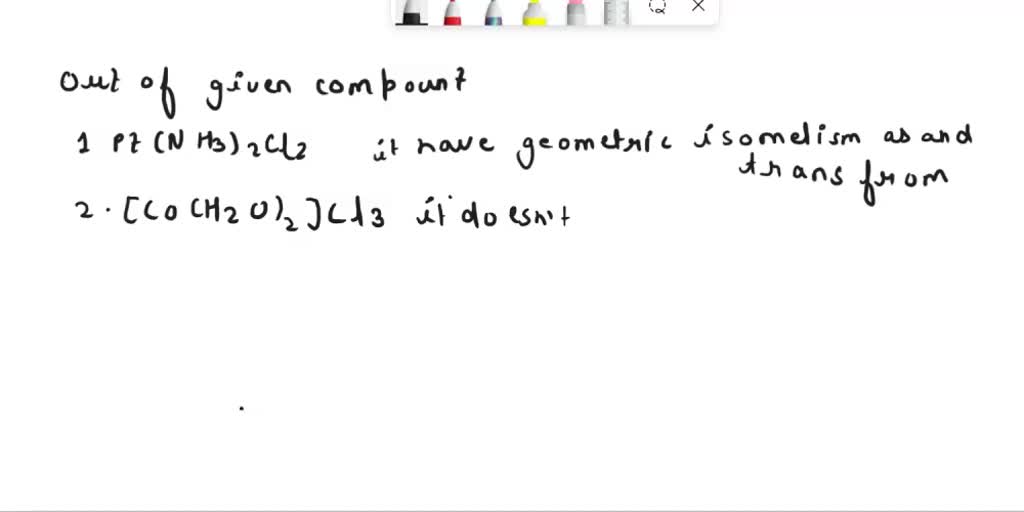 out of given compount
1 Pt(NH3)2Cl2 it have geometric isomelism as and
trans from
2. [Co(H2O)2]Cl3 it doesn't